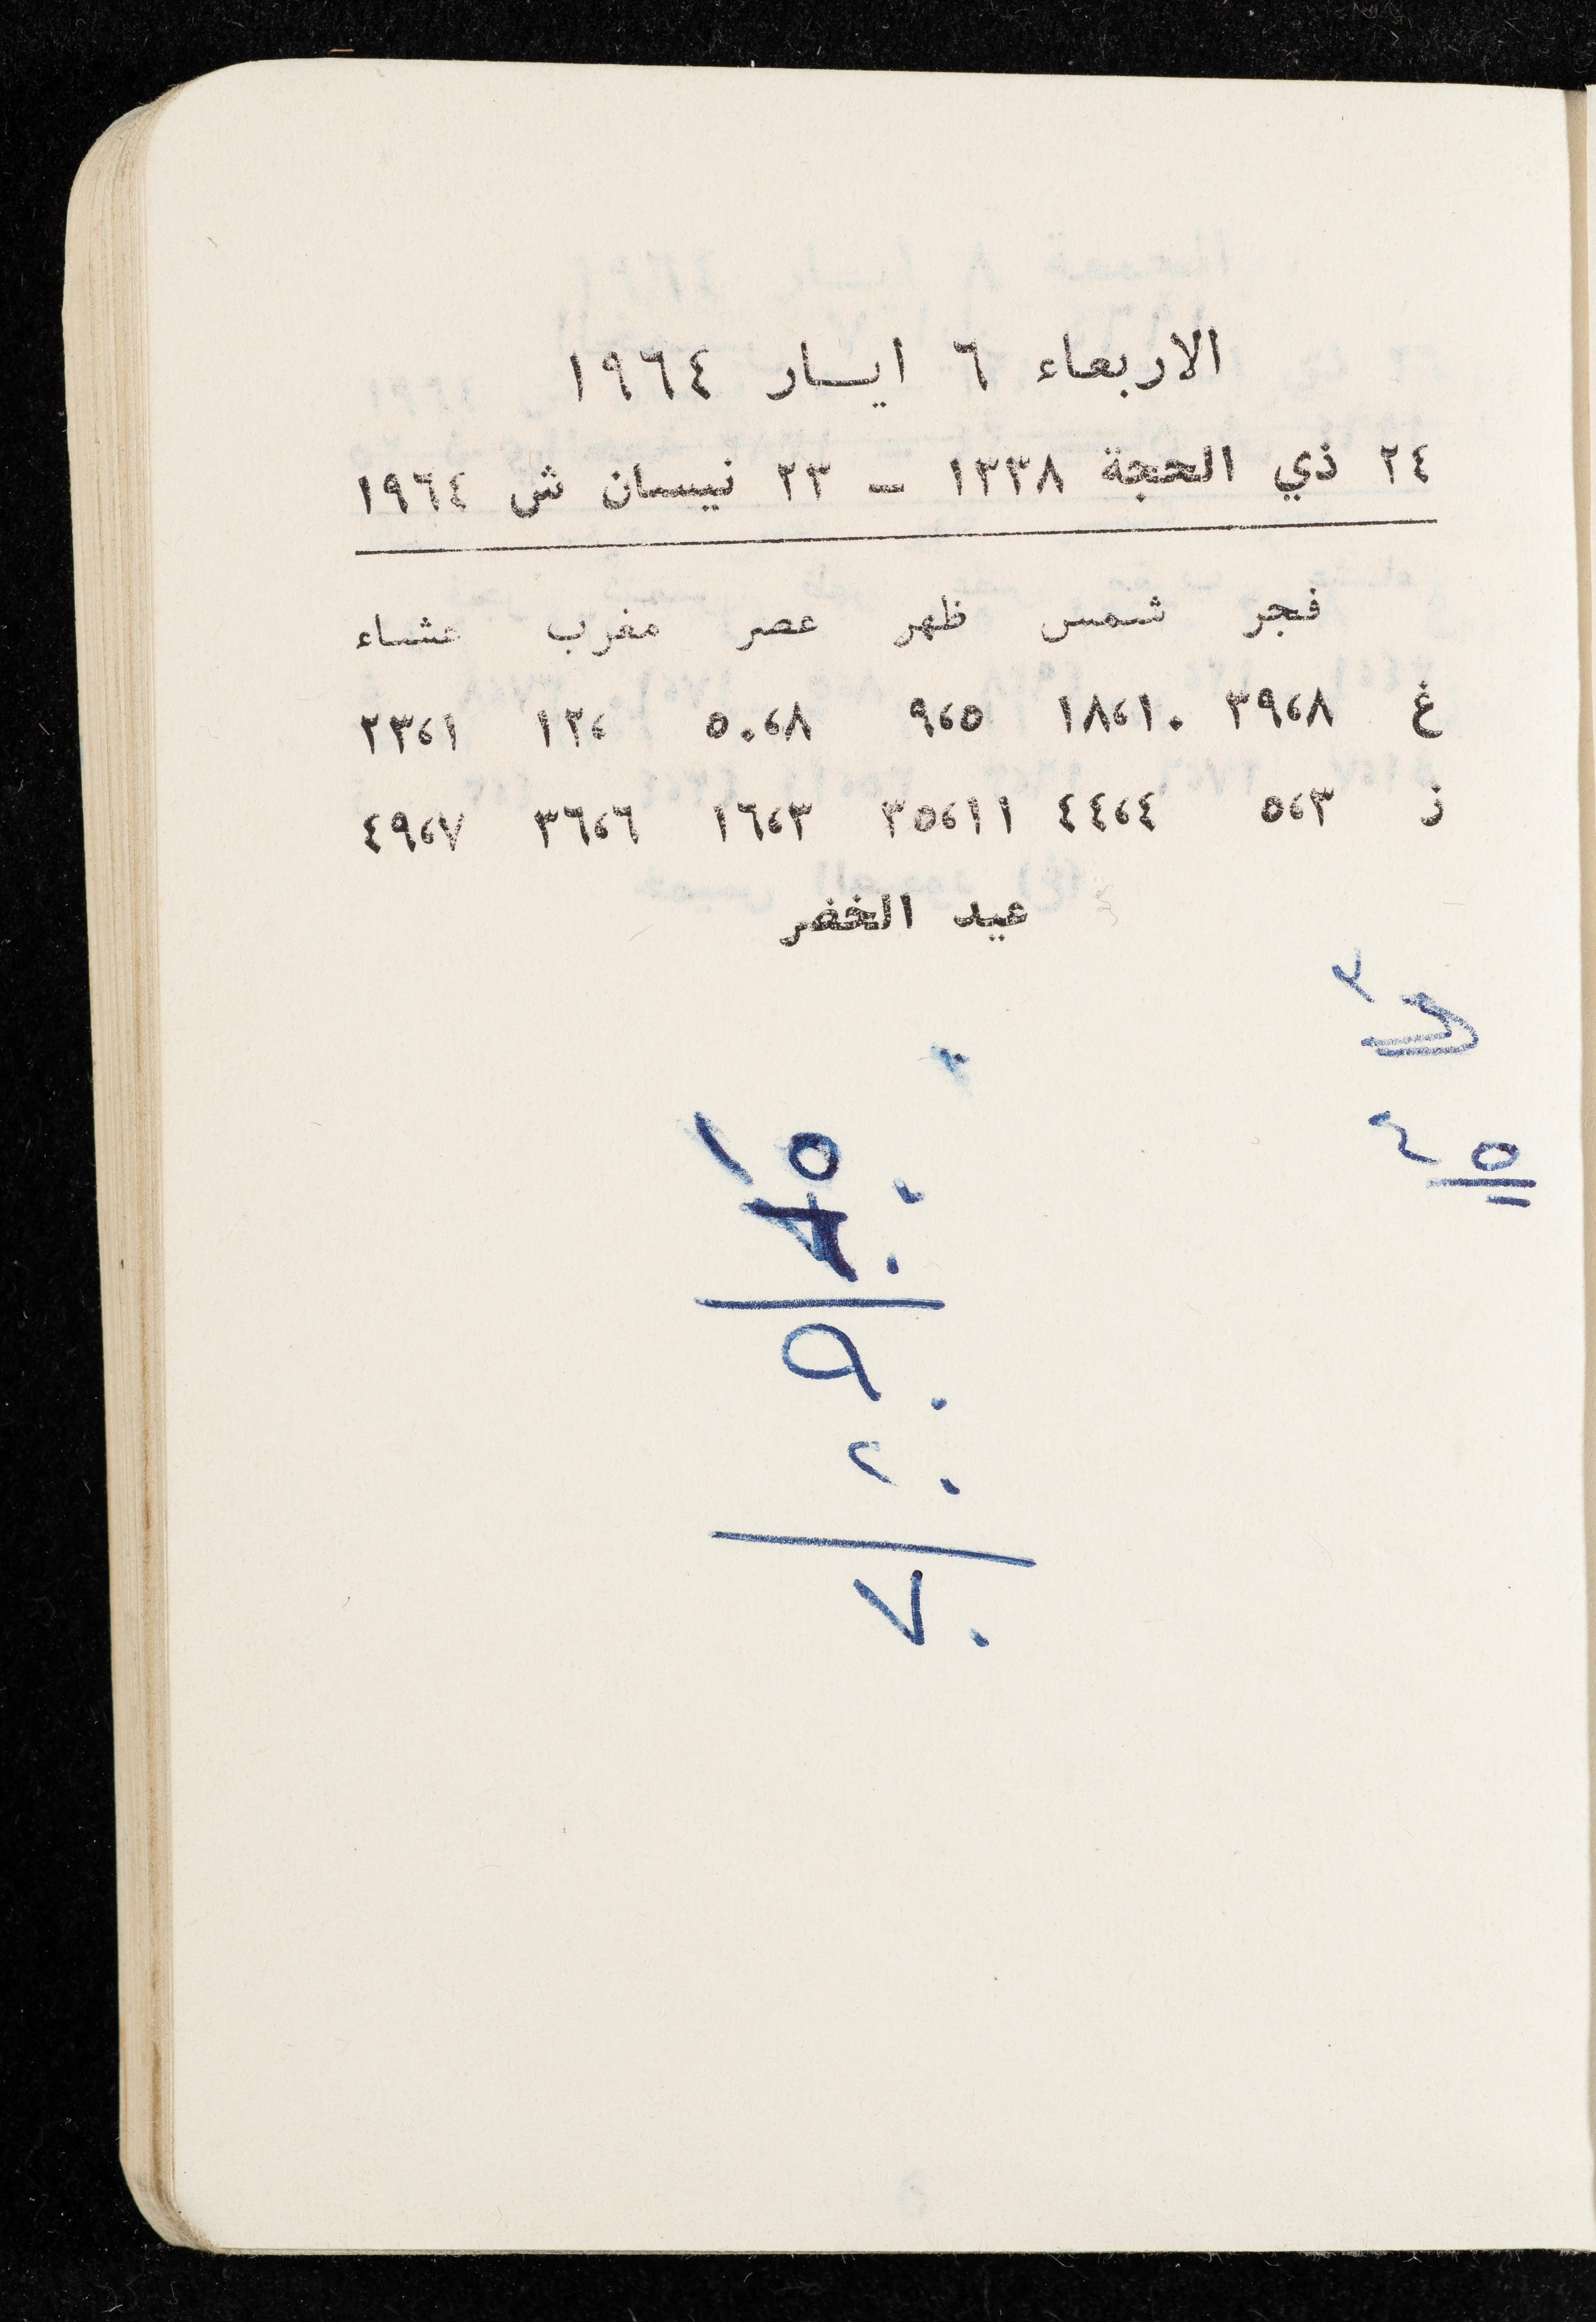 الاربعاء ٦ ايسار ١٩٦٤
٢٤ ذي الحجة ١٣٣٨ - ٢٣ نيسان ش ١٩٦٤
فجر شمس ظهر عصر مغرب عشاء
غ ٣٩،٨ ١٨،١٠ ٩،٥ ٥٠،٨ ١٢، ٢٣،١
ز ٥،٣ ٤٤،٤ ٣٥،١١ ١٦،٣ ٣٦،٦ ٤٩،٧
عيد الخضر
٩٠
٢٠
٧٠